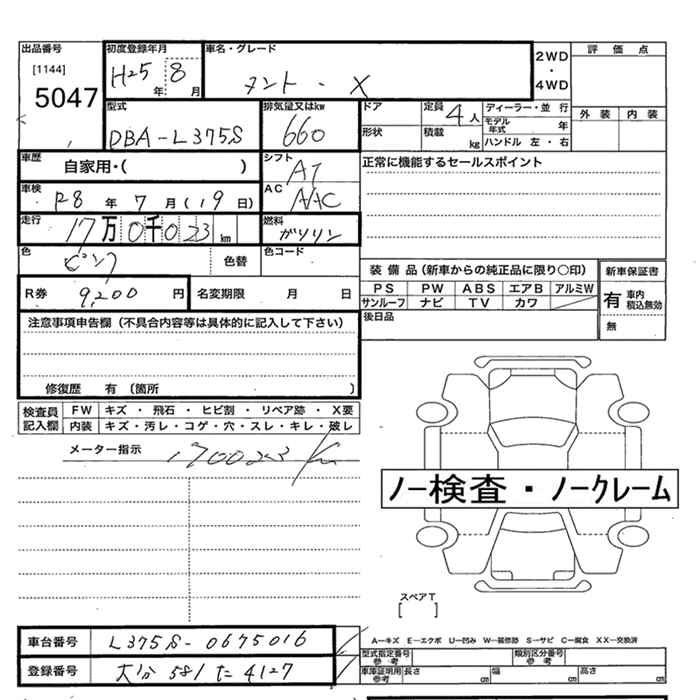 出品番号 初度登録年月 車名・グレード 評価点
[1144] 2WD
5047 H25年 8月 タント・X ・
4WD 外装 内装
型式 排気量又はkw ドア 定員 4人 ディーラー・並行
DBA-L375S 660 形状 積載 kg モデル年式 年
ハンドル 左・右
車歴 自家用・( ) シフト AT 正常に機能するセールスポイント
車検 R8年 7月(19日) AC AAC
走行 17万0千023km 燃料 ガソリン
色 ピンク 色替 色コード
装備品(新車からの純正品に限り○印) 新車保証書
R券 9,200円 名変期限 月 日 PS PW ABS エアB アルミW 有 車内積込無効
サンルーフ ナビ TV カワ 無
注意事項申告欄(不具合内容等は具体的に記入して下さい) 後日品
修復歴 有(箇所 )
検査員 FW キズ・飛石・ヒビ割・リペア跡・X要
記入欄 内装 キズ・汚レ・コゲ・穴・スレ・キレ・破レ
メーター指示 170023Km
ノー検査・ノークレーム
スペアT
[ ]
車台番号 L375S-0675016 A―キズ E―エクボ U―凹み W―補修跡 S―サビ C―腐食 XX―交換済
型式指定番号 参考 類別区分番号 参考
登録番号 大分 581 た 4127 車庫証明用 参考 長さ cm 幅 cm 高さ cm